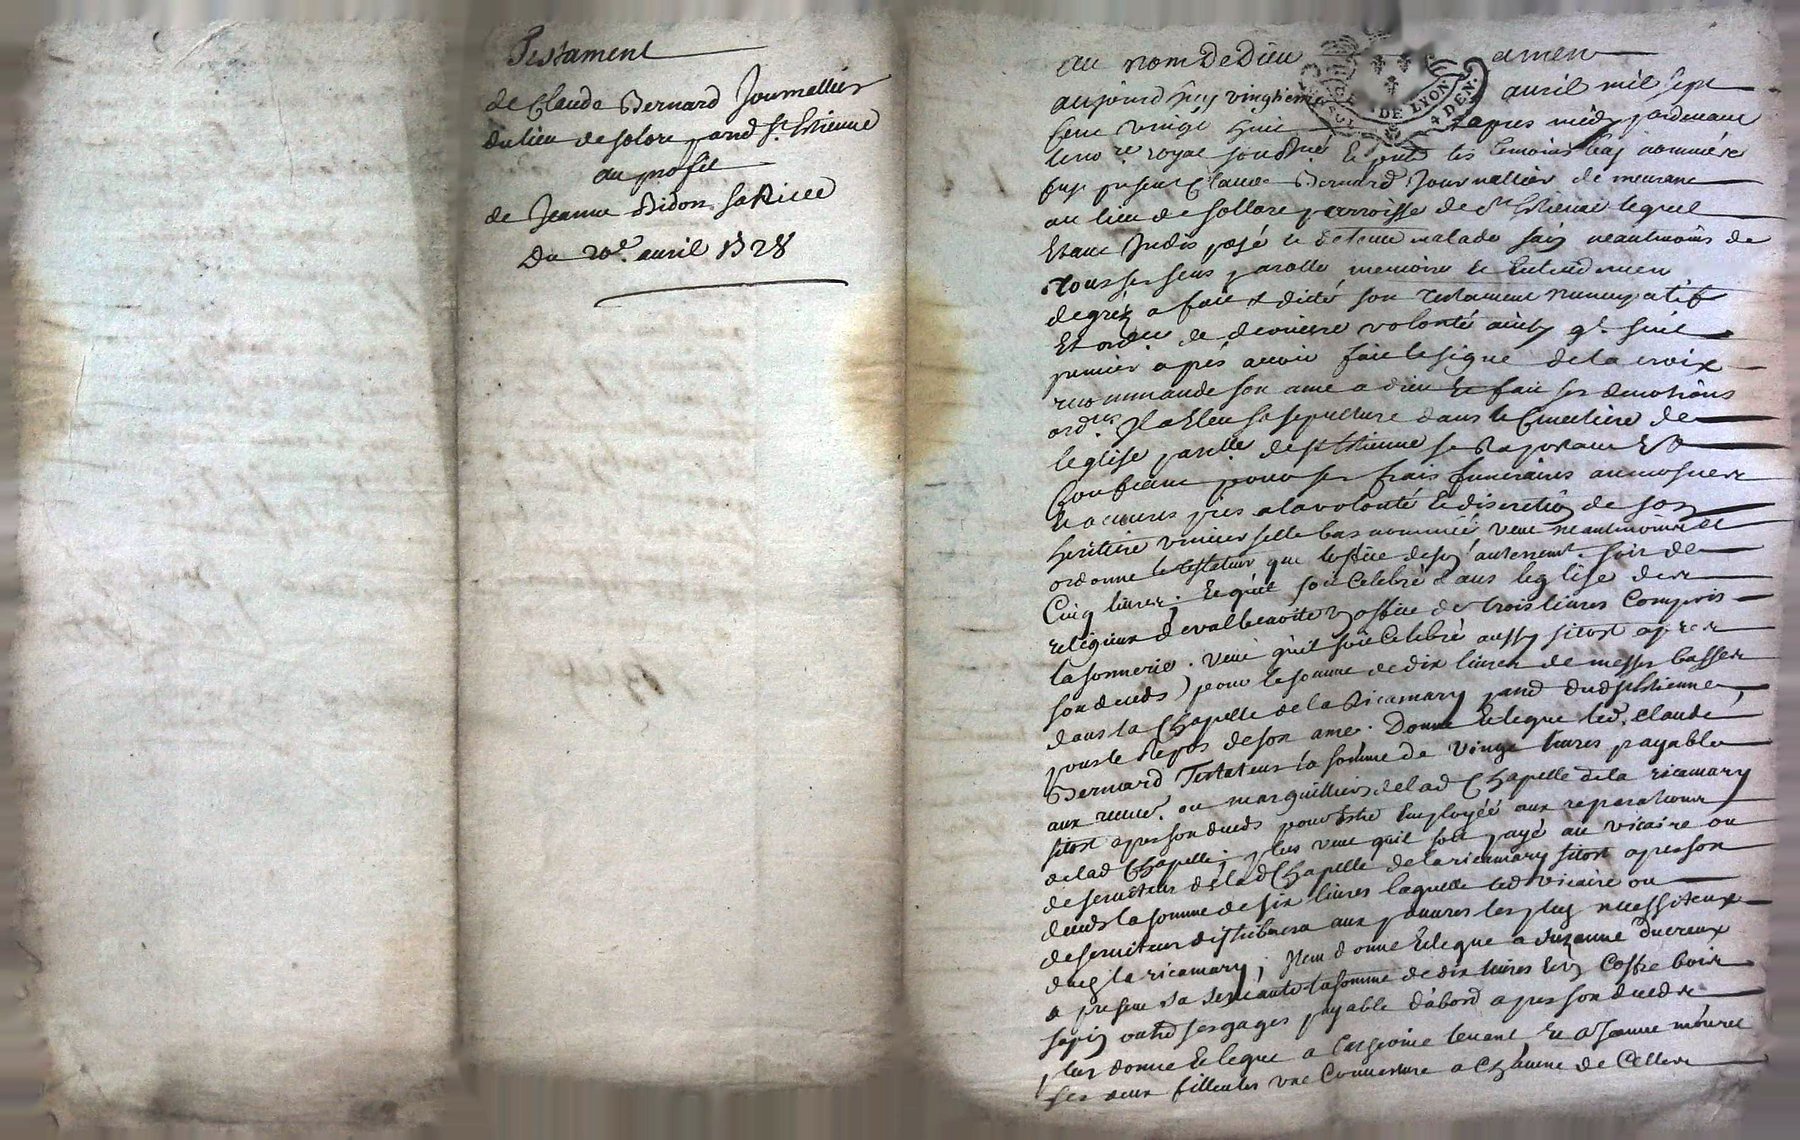 Testament
de Claude Bernard Journallier
du lieu de solore pard St Estienne
au profit
de Jeanne Bidon sa Niece
Du 20e. auril 1728
au nom de Dieu amen
aujourd'huy vingtieme auril mil sept
cent vingt huit apres midy pardeuant
le nore. royal soubsné. et pnts les temoins bas nommés
fut present Claude Bernard Journallier demeurant
au lieu de sollore parroisse de St Estienne lequel
Estant Indisposé et detenu malade sain neantmoins de
tous ses sens parolle memoire et Entendement
de gré a fait & dicté son testament nuncupatif
Et ordce de derniere volonté ainsy qt. suit
premier apres auoir fait le signe de la croix
recommande son ame a dieu et fait ses deuotions
ordres. Il a Eleu sa sepulture dans le Cimetiere de
leglise parlle de St Estienne se Raportant Et
Confiant pour ses frais funeraires aumosnes
et oeuures pies a la volonté et discretion de son
heritiere vniuerselle bas nommée veut neantmoins et
ordonne le testateur que lofice de son enterremt. soit de
Cinq liures; et qu'il soit Celebré dans leglise des
religieux de valbenoitte vn ofice de trois liures Compris
la sonnerie. veut qu'il soit Celebré aussy sitost apres
son deceds pour la somme de dix liures de messes basses
dans la Chapelle de la Ricamary pard dud St Estienne
pour le Repos de son ame. Donne et legue led. Claude
Bernard Testateur la somme de vingt liures payable
aux recteurs. ou marguilliers de lad Chapelle de la ricamary
sitost apres son deceds pour Estre Employée aux reparations
de lad Chapelle; plus veut quil soit payé au vicaire ou
deseruiteur de lad Chapelle de la ricamary sitost apres son
deceds la somme de six liures laquelle led vicaire ou
deseruiteur distribuera aux pauures les plus necessiteux
dud la ricamary; Item donne et legue a Suzanne ducreux
a present sa seruante la somme de dix liures et vn Coffre bois
sapin outre ses gages payable d'abord apres son deceds
plus donne et legue a tenant et a Jeanne
ses deux filleules vne Couuerture a Chacune de Celles